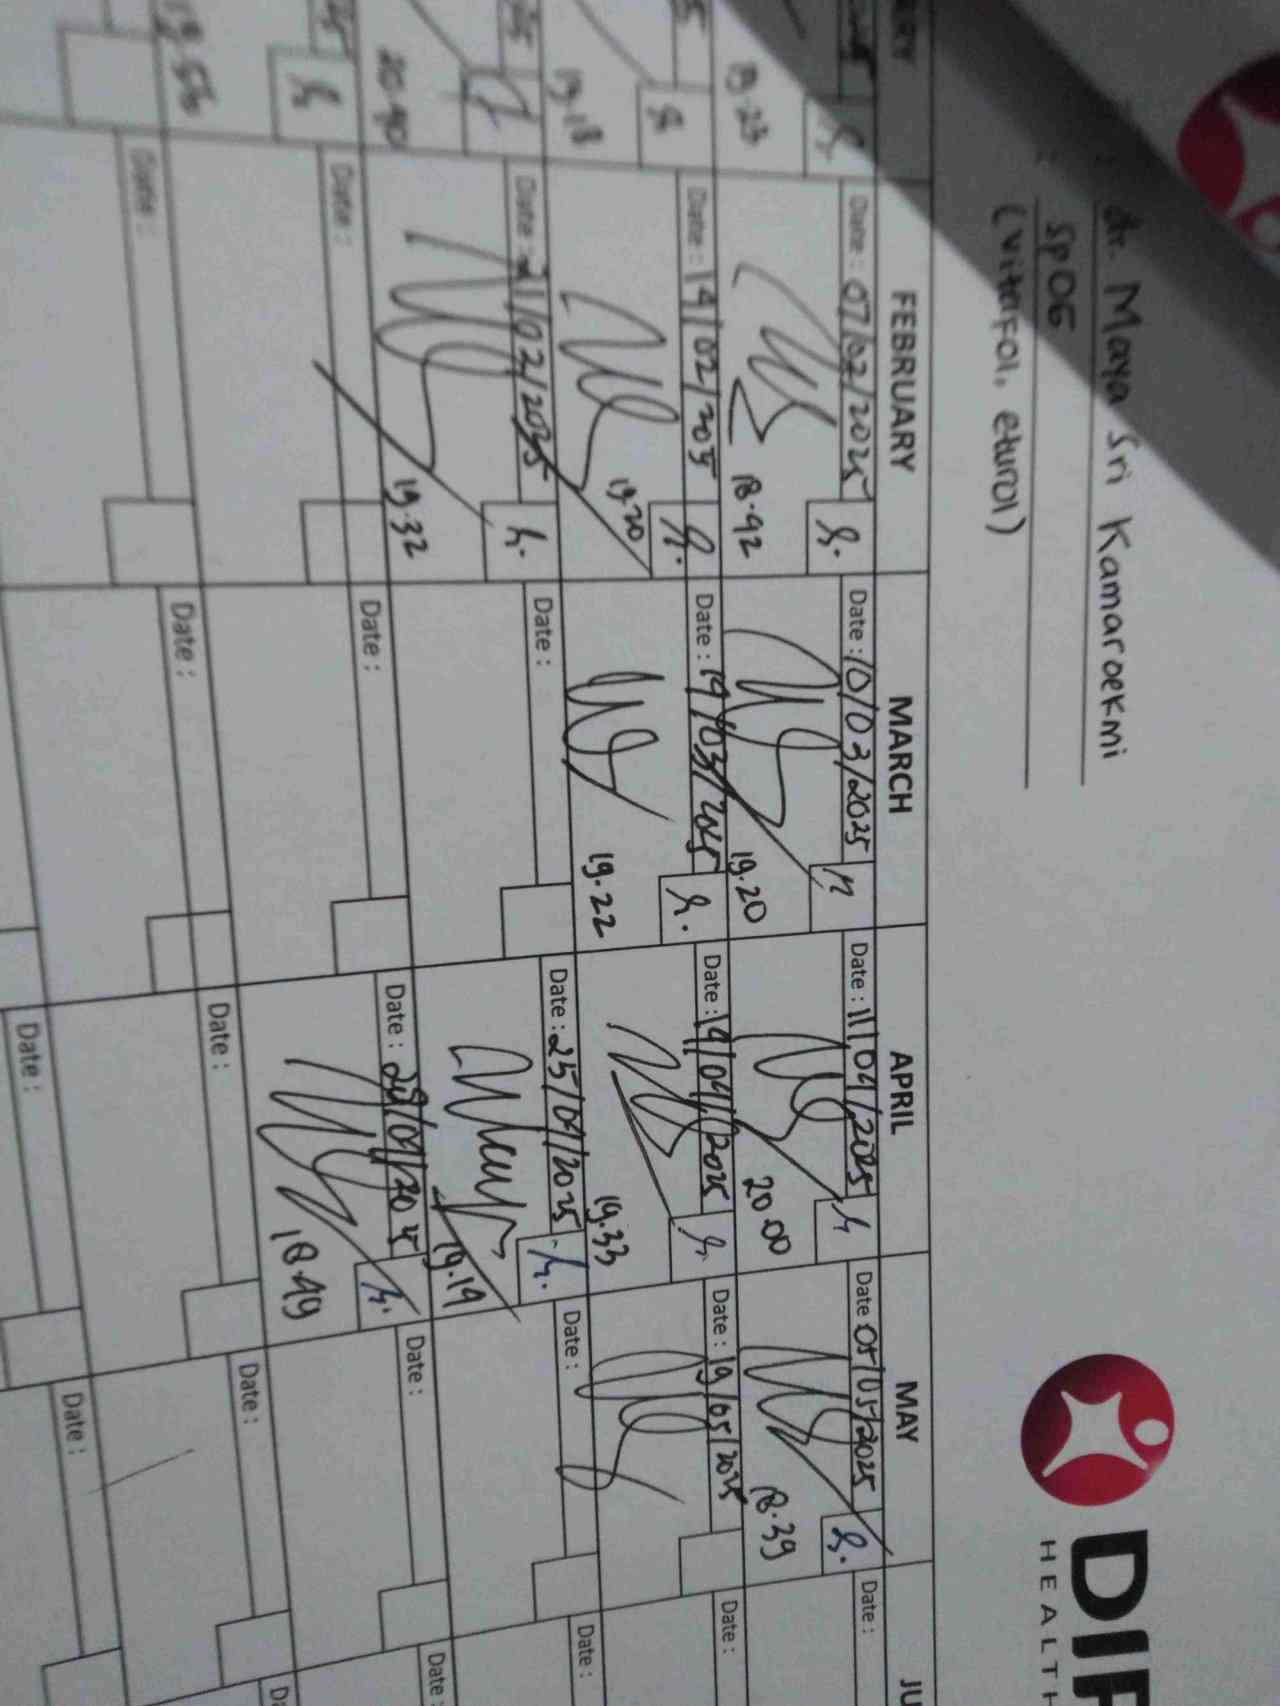 dr. Maya Sri Kamaroekmi
SpOG
(vitafol, eturol)
DIP
HEALTH
FEBRUARY
MARCH
APRIL
MAY
JU
Date : 07/02/2025
18.42
Date : 10/03/2025
19.20
Date : 11/04/2025
20.00
Date 05/05/2025
18.39
Date :
19.23
Date : 14/02/205
19.20
Date : 19/03/2025
19.22
Date : 19/04/2025
19.33
Date : 19/05/2025
Date :
19.18
Date : 21/02/2025
19.32
Date :
Date : 25/04/2025
19.14
Date :
Date :
20.40
Date :
Date :
Date : 28/04/2025
18.49
Date :
Date :
19.56
Date :
Date :
Date :
Date :
Date :
Date :